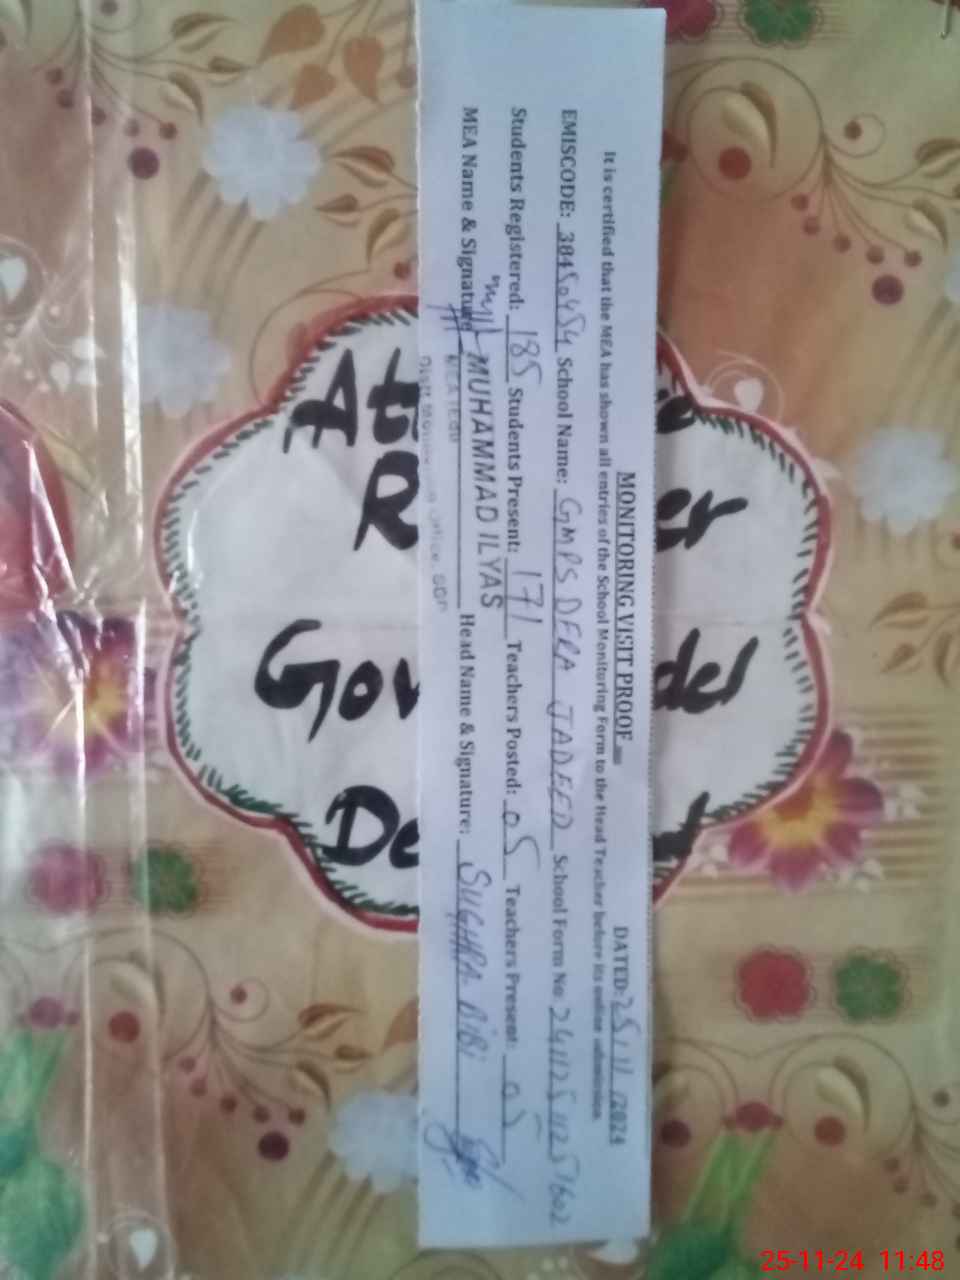 MONITORING VISIT PROOF DATED: 25/11/2024
It is certified that the MEA has shown all entries of the School Monitoring Form to the Head Teacher before its online submission.
EMISCODE: 38450454 School Name: GMPS DERA JADEED School Form No: 241125
Students Registered: 185 Students Present: 171 Teachers Posted: 05 Teachers Present:
MEA Name & Signature MUHAMMAD ILYAS Head Name & Signature: SUGHRA BIBI
Office, SGP
25-11-24 11:48